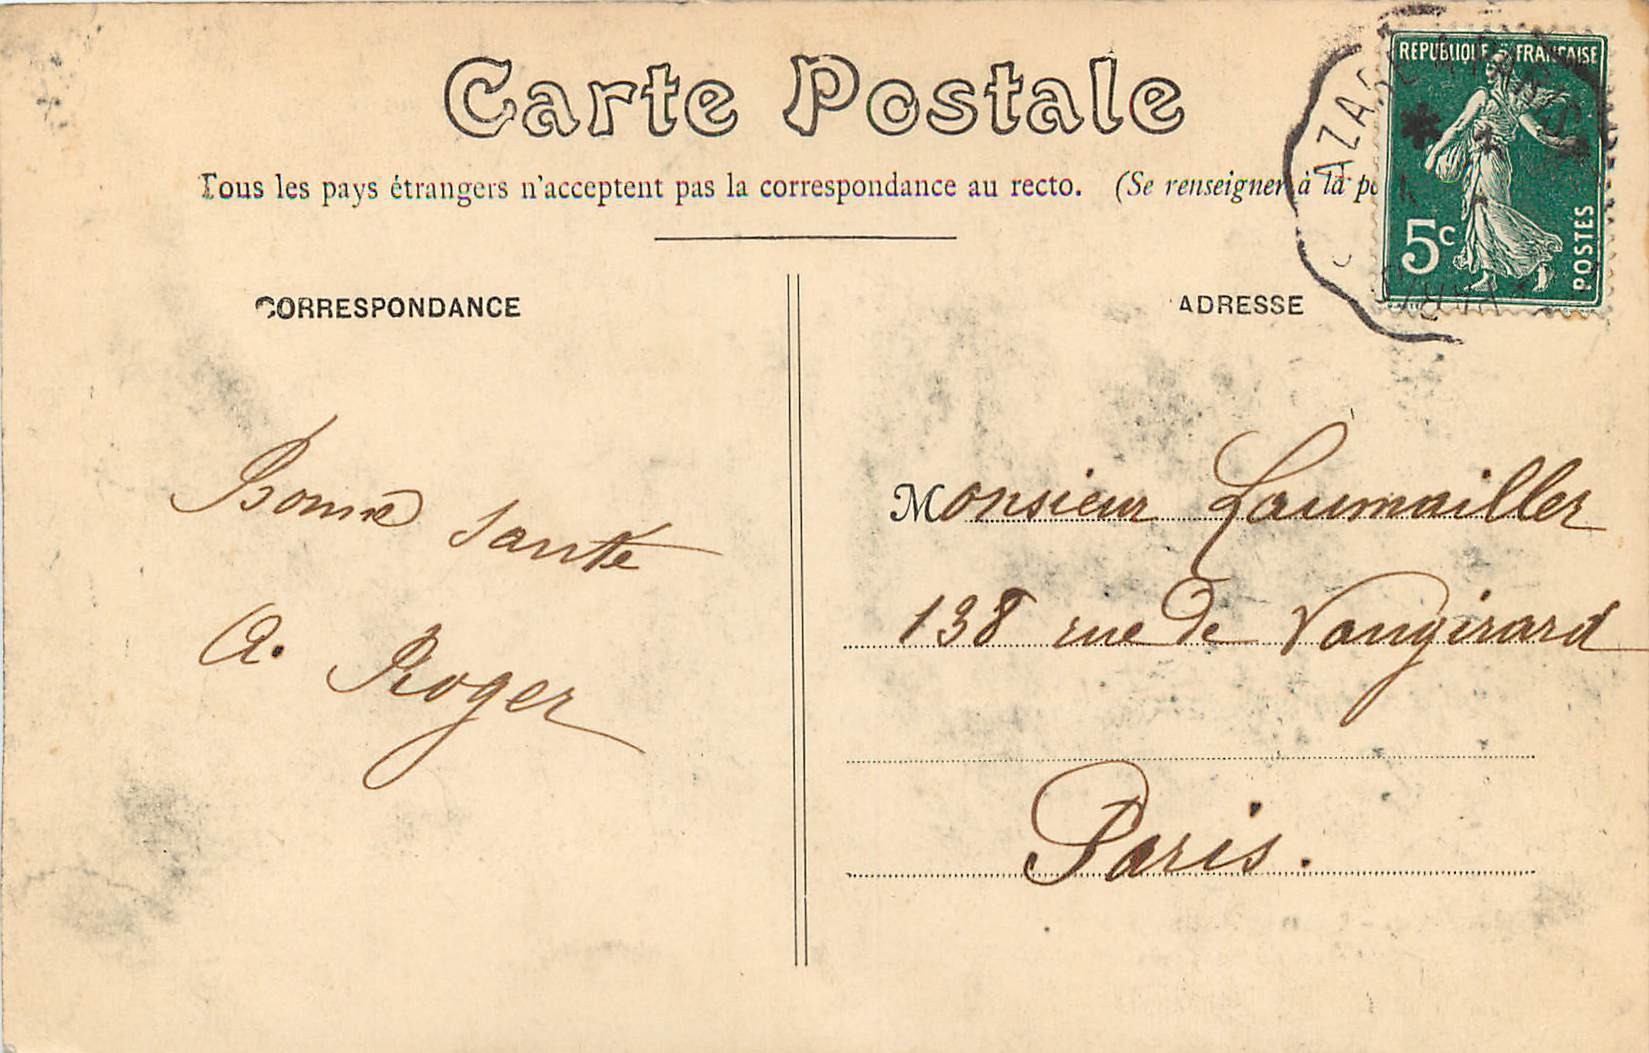 Carte Postale
Tous les pays étrangers n'acceptent pas la correspondance au recto. (Se renseigner à la
CORRESPONDANCE
ADRESSE
REPUBLIQUE FRANÇAISE
5c
POSTES
Bonne santé
A. Roger
Monsieur Laumailler
138 rue de Vaugirard
Paris.